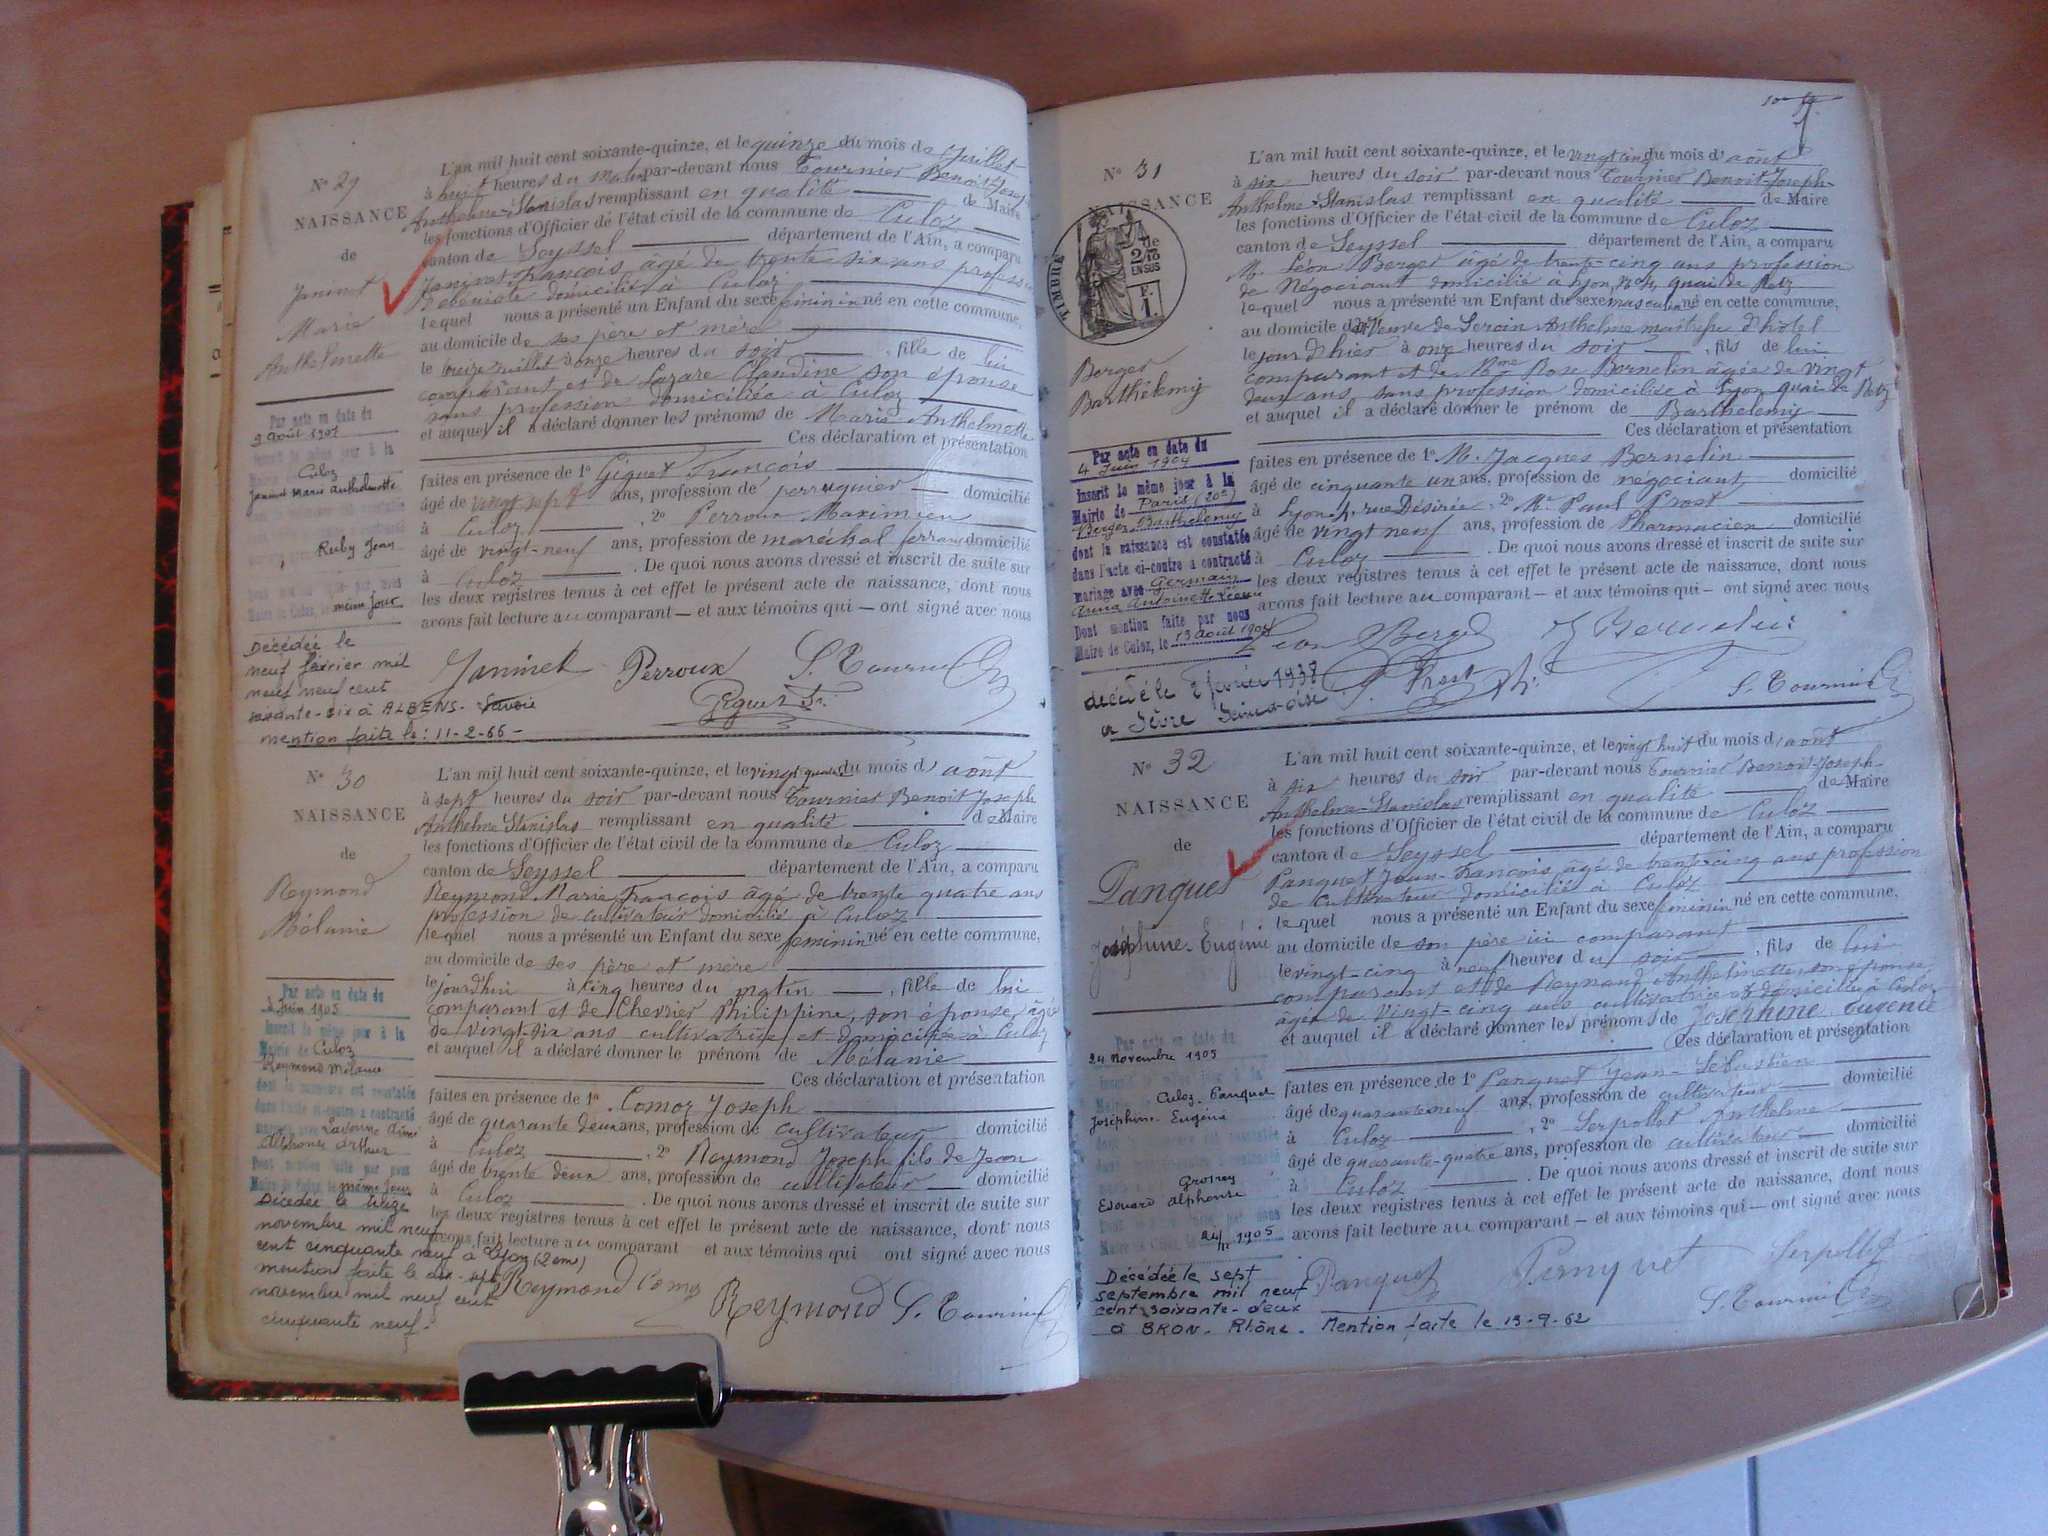 N° 29
NAISSANCE
de
Janinet
Marie
Anthelmette
Par acte en date du
9 août 1901
Culoz
Janinet Marie Anthelmette
Ruby Jean
Maire de Culoz, le même jour
Décédée le
neuf février mil
neuf cent
soixante-six à ALBENS - Savoie
mention faite le : 11-2-66 -
L'an mil huit cent soixante-quinze, et le quinze du mois de Juillet
à huit heures du matin par-devant nous Tournier Benoit-Joseph
Anthelme-Stanislas remplissant en qualité de Maire
les fonctions d'Officier de l'état civil de la commune de Culoz
canton de Seyssel département de l'Ain, a comparu
Janinet François âgé de trente-six ans profession
domicilié à Culoz
lequel nous a présenté un Enfant du sexe féminin né en cette commune,
au domicile de ses père et mère
le treize juillet à onze heures du soir , fille de lui
comparant et de Lazare Claudine son épouse
sans profession domiciliée à Culoz
et auquel il a déclaré donner les prénoms de Marie Anthelmette
Ces déclaration et présentation
faites en présence de 1° Giguet François
âgé de vingt sept ans, profession de perruquier domicilié
à Culoz , 2° Perroux Maximien
âgé de vingt-neuf ans, profession de maréchal ferrant domicilié
à Culoz . De quoi nous avons dressé et inscrit de suite sur
les deux registres tenus à cet effet le présent acte de naissance, dont nous
avons fait lecture au comparant — et aux témoins qui — ont signé avec nous
Janinet Perroux S. Tournier
Giguet
N° 30
NAISSANCE
de
Reymond
Mélanie
Par acte en date du
Juin 1905
Inscrit le même jour à la
Mairie de Culoz
Reymond Mélanie
dont la naissance est constatée
dans l'acte ci-contre a contracté
Alphonse Arthur
Dont mention faite par nous
Maire de Culoz, le même jour
Décédée le treize
novembre mil neuf
cent cinquante neuf à Lyon (2em)
mention faite le dix-sept
novembre mil neuf cent
cinquante neuf.-
L'an mil huit cent soixante-quinze, et le vingt quatre du mois d'août
à sept heures du soir par-devant nous Tournier Benoit Joseph
Anthelme Stanislas remplissant en qualité de Maire
les fonctions d'Officier de l'état civil de la commune de Culoz
canton de Seyssel département de l'Ain, a comparu
Reymond Marie François âgé de trente quatre ans
profession de cultivateur domicilié à Culoz
lequel nous a présenté un Enfant du sexe féminin né en cette commune,
au domicile de ses père et mère
le jourd'hui à cinq heures du matin , fille de lui
comparant et de Chevrier Philippine, son épouse, âgée
de vingt-six ans cultivatrice et domiciliée à Culoz
et auquel il a déclaré donner le prénom de Mélanie
Ces déclaration et présentation
faites en présence de 1° Comoz Joseph
âgé de quarante deux ans, profession de cultivateur domicilié
à Culoz , 2° Reymond Joseph fils de Jean
âgé de trente deux ans, profession de cultivateur domicilié
à Culoz . De quoi nous avons dressé et inscrit de suite sur
les deux registres tenus à cet effet le présent acte de naissance, dont nous
avons fait lecture au comparant et aux témoins qui ont signé avec nous
Reymond Comoz Reymond S. Tournier
N° 31
NAISSANCE
TIMBRE
2/10
EN SUS
F.
1.
Berger
Barthélemy
Par acte en date du
4 Juin 1904
Inscrit le même jour à la
Mairie de Paris (20e)
Berger Barthélemy
dont la naissance est constatée
dans l'acte ci-contre a contracté
mariage avec Germain
Anna Antoinette
Dont mention faite par nous
Maire de Culoz, le 13 août 1904
décédé le 2 février 1938
à Sèvre Seine & oise
L'an mil huit cent soixante-quinze, et le vingt cinq du mois d'août
à six heures du soir par-devant nous Tournier Benoit-Joseph-
Anthelme-Stanislas remplissant en qualité de Maire
les fonctions d'Officier de l'état civil de la commune de Culoz
canton de Seyssel département de l'Ain, a comparu
M. Léon Berger âgé de trente-cinq ans profession
de Négociant domicilié à Lyon, quai de Retz
lequel nous a présenté un Enfant du sexe masculin né en cette commune,
au domicile de Veuve de Seroin Anthelme maître d'hôtel
le jour d'hier à onze heures du soir , fils de lui
comparant et de Mme Rose Bernelin âgée de vingt
deux ans sans profession domiciliée à Lyon quai de Retz
et auquel il a déclaré donner le prénom de Barthélemy
Ces déclaration et présentation
faites en présence de 1° M. Jacques Bernelin
âgé de cinquante un ans, profession de négociant domicilié
à Lyon, rue Désirée , 2° Mr Paul Prost
âgé de vingt neuf ans, profession de Pharmacien domicilié
à Culoz . De quoi nous avons dressé et inscrit de suite sur
les deux registres tenus à cet effet le présent acte de naissance, dont nous
avons fait lecture au comparant — et aux témoins qui — ont signé avec nous
Léon Berger J Bernelin
P. Prost S. Tournier
N° 32
NAISSANCE
de
Panquet
Joséphine-Eugénie
Par acte en date du
24 novembre 1905
Culoz. Panquet
Joséphine Eugénie
Edouard Alphonse
24/11 1905
Décédée le sept
septembre mil neuf
cent soixante-deux
à BRON. Rhône. Mention faite le 13-9-62
L'an mil huit cent soixante-quinze, et le vingt huit du mois d'août
à six heures du soir par-devant nous Tournier Benoit-Joseph-
Anthelme-Stanislas remplissant en qualité de Maire
les fonctions d'Officier de l'état civil de la commune de Culoz
canton de Seyssel département de l'Ain, a comparu
Panquet Jean-François âgé de trente-cinq ans profession
de cultivateur domicilié à Culoz
lequel nous a présenté un Enfant du sexe féminin né en cette commune,
au domicile de son père ici comparant
le vingt-cinq à neuf heures du soir , fils de lui
comparant et de Reynaud Anthelmette, son épouse
âgée de vingt-cinq ans cultivatrice et domiciliée à Culoz
et auquel il a déclaré donner les prénoms de Joséphine Eugénie
Ces déclaration et présentation
faites en présence de 1° Panquet Jean-Sébastien
âgé de quarante neuf ans, profession de cultivateur domicilié
à Culoz , 2° Serpollet Anthelme
âgé de quarante-quatre ans, profession de cultivateur domicilié
à Culoz . De quoi nous avons dressé et inscrit de suite sur
les deux registres tenus à cet effet le présent acte de naissance, dont nous
avons fait lecture au comparant — et aux témoins qui — ont signé avec nous
Panquet Serpollet
S. Tournier